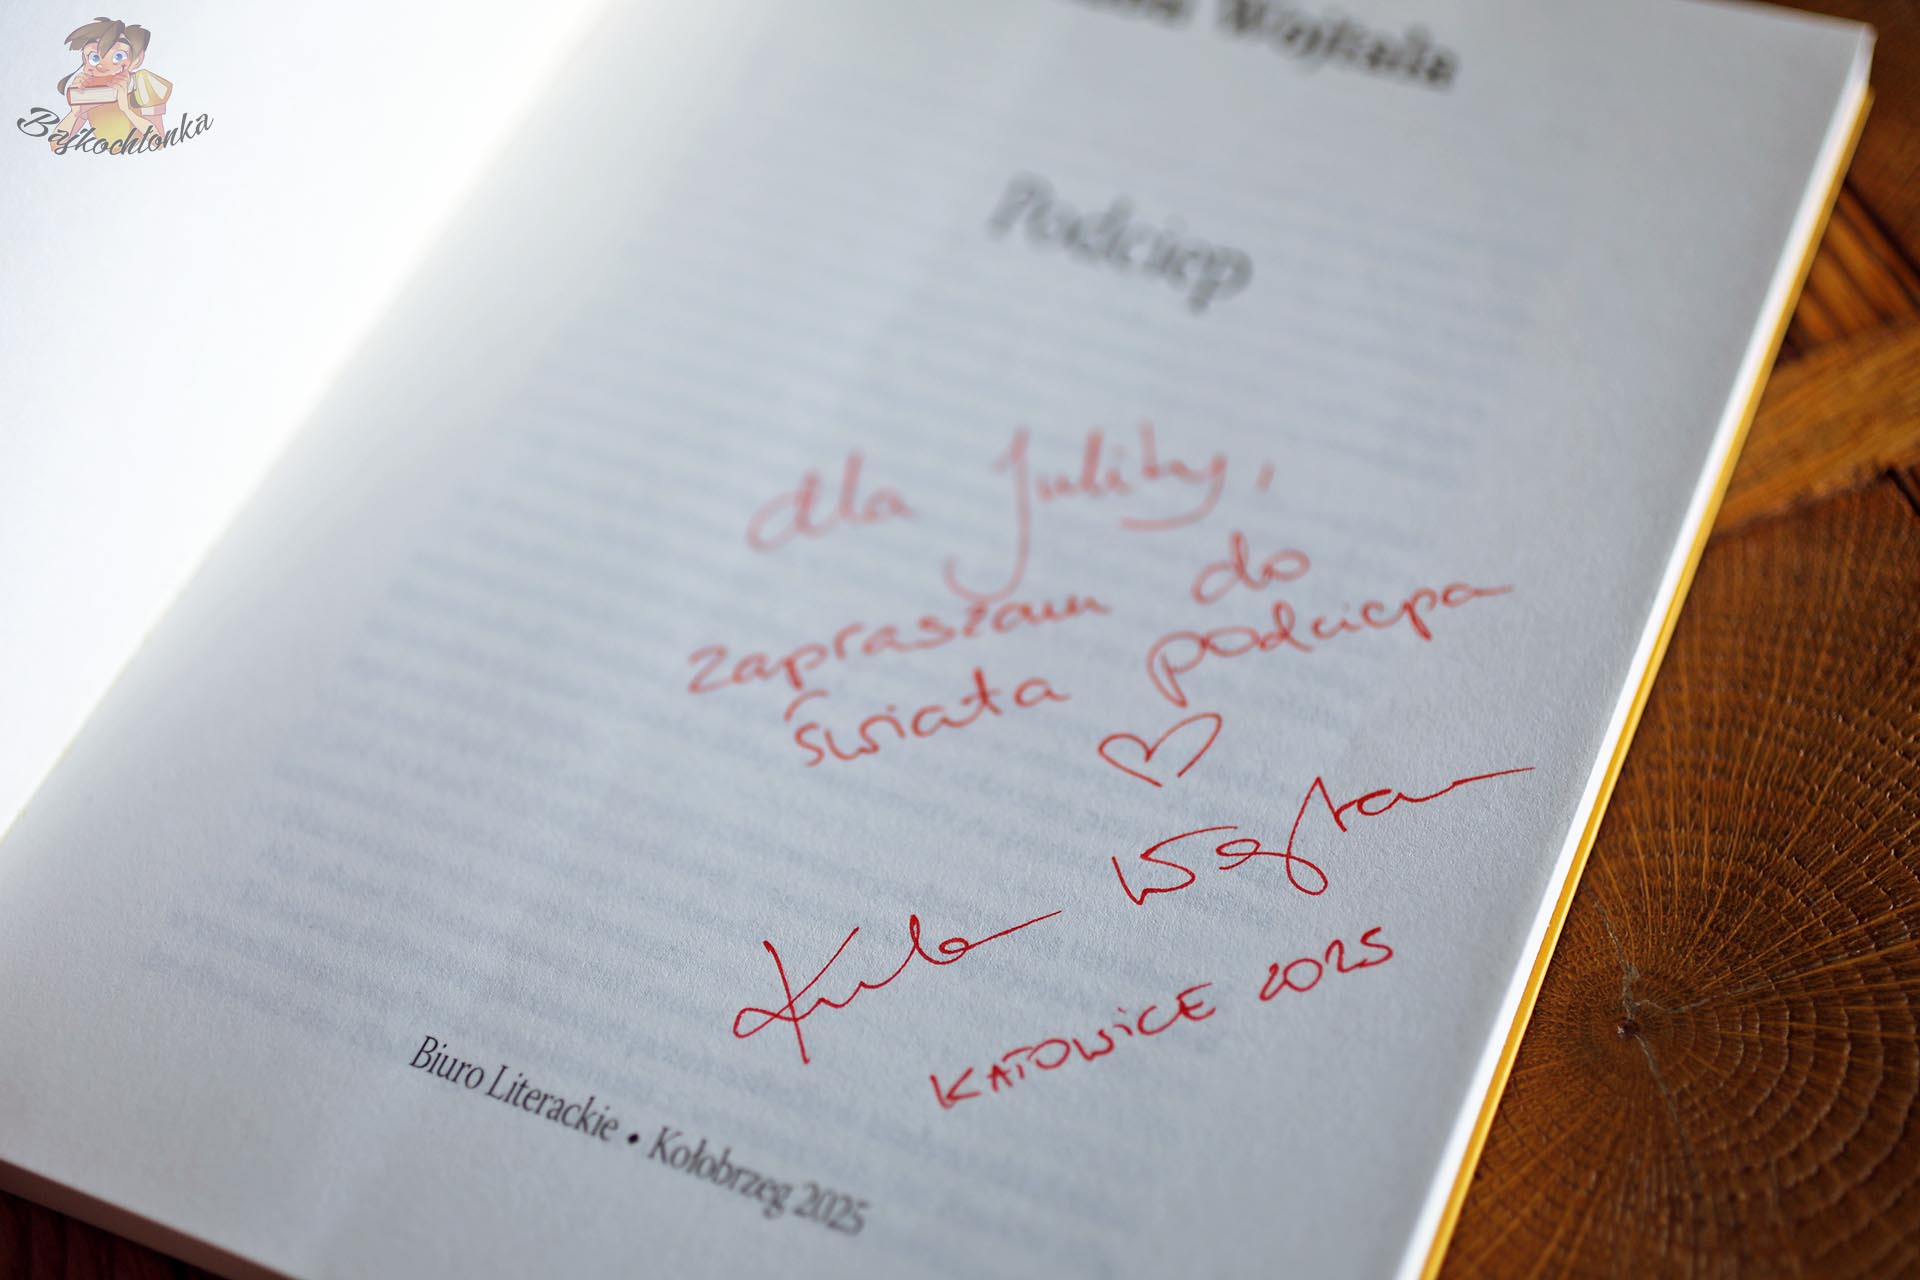 Bajkochłonka
Podciep
dla Julity,
zapraszam do
świata podciepa
Kuba Wojtaszczyk
KATOWICE 2025
Biuro Literackie • Kołobrzeg 2025